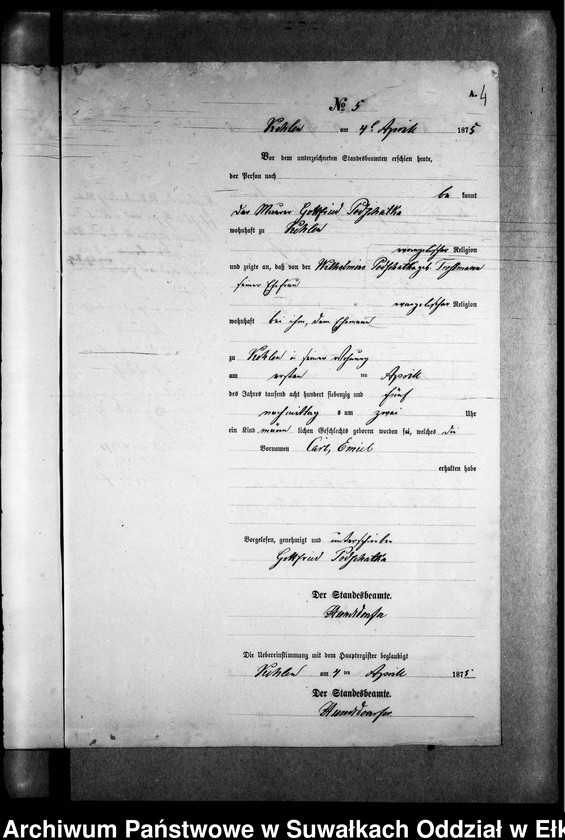 A. 4
No 5
am 4t April 1875
Vor dem unterzeichneten Standesbeamten erschien heute,
der Person nach
be kannt
der Maurer Gottfried
wohnhaft zu
evangelischer Religion
und zeigte an, daß von der Wilhelmine geb.
seiner Ehefrau
evangelischer Religion
wohnhaft bei ihm, dem Ehemann
zu in seiner Wohnung
am ersten ten April
des Jahres tausend acht hundert siebenzig und fünf
nachmittag s um zwei Uhr
ein Kind männ lichen Geschlechts geboren worden sei, welches die
Vornamen Carl, Emil
erhalten habe
Vorgelesen, genehmigt und unterschrieben
Gottfried
Der Standesbeamte.
Die Uebereinstimmung mit dem Hauptregister beglaubigt
am 4 ten April 1875
Der Standesbeamte.
Archiwum Państwowe w Suwałkach Oddział w Ełk